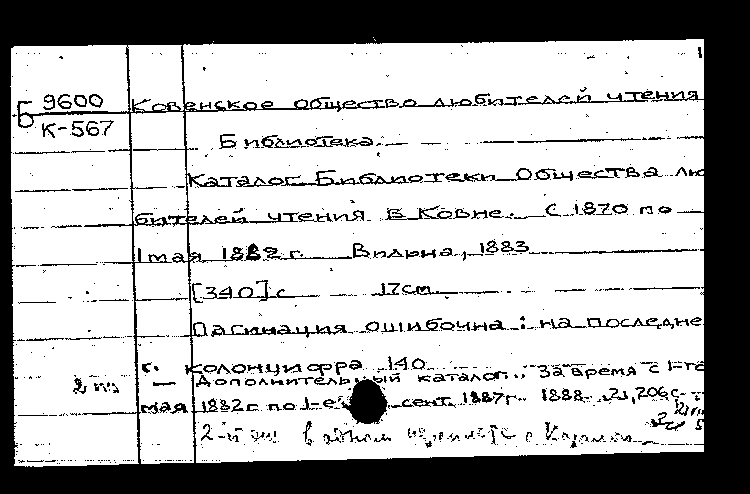 Б 9600
К-567
Ковенское общество любителей чтения
Библиотека.
Каталог Библиотеки Общества лю
бителей чтения в Ковне. С 1870 по
1 мая 1882 г. Вильна, 1883
[340] с 17см.
Пагинация ошибочна: на последне
с. колонцифра 140
2 экз — Дополнительный каталог.. За время с 1-го
мая 1882 г по 1-е сент. 1887г. 1888. 21, 206с.
2-й экз в одном